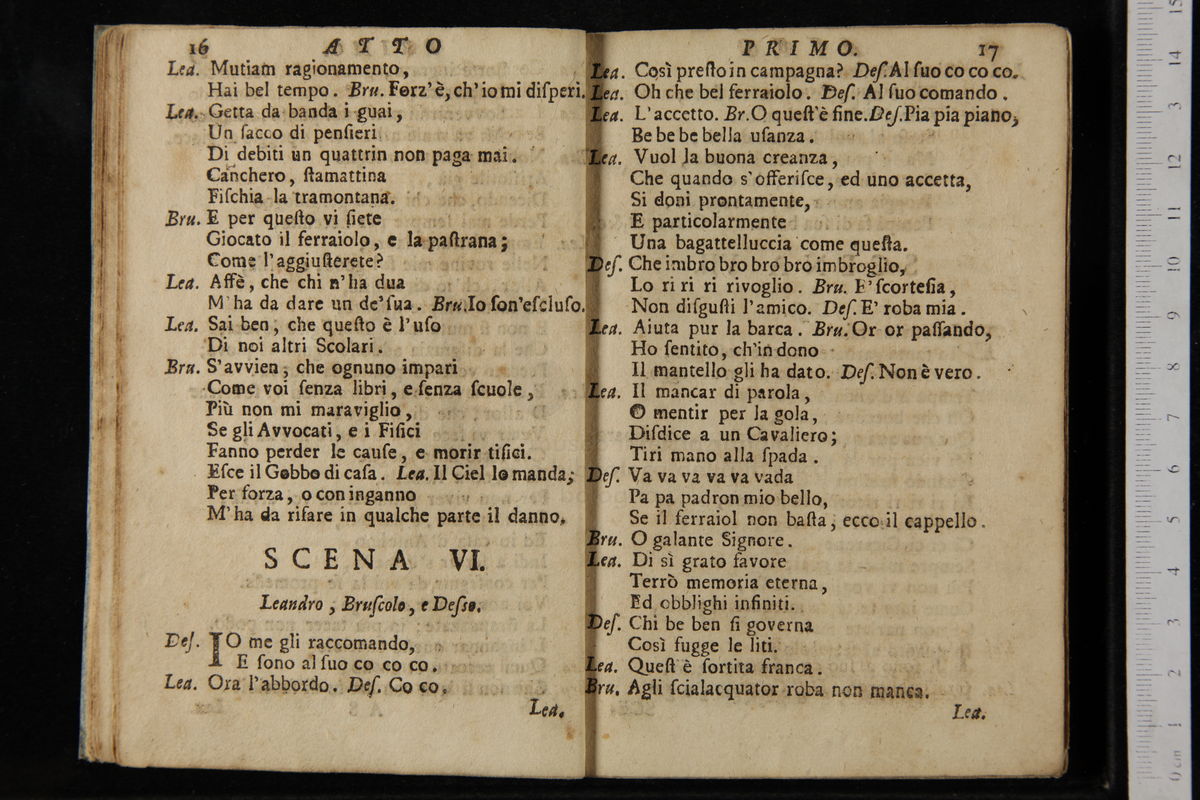 16 ATTO
Lea. Mutiam ragionamento,
Hai bel tempo. Bru. Forz'è, ch'io mi diſperi.
Lea. Getta da banda i guai,
Un ſacco di penſieri
Di debiti un quattrin non paga mai.
Canchero, ſtamattina
Fiſchia la tramontana.
Bru. E per queſto vi ſiete
Giocato il ferraiolo, e la paſtrana;
Come l'aggiuſterete?
Lea. Affè, che chi n'ha dua
M'ha da dare un de'ſua. Bru. Io ſon'eſcluſo.
Lea. Sai ben, che queſto è l'uſo
Di noi altri Scolari.
Bru. S'avvien, che ognuno impari
Come voi ſenza libri, e ſenza ſcuole,
Più non mi maraviglio,
Se gli Avvocati, e i Fiſici
Fanno perder le cauſe, e morir tiſici.
Eſce il Gobbo di caſa. Lea. Il Ciel lo manda;
Per forza, o con inganno
M'ha da rifare in qualche parte il danno.
SCENA VI.
Leandro, Bruſcolo, e Deſso.
Deſ. IO me gli raccomando,
E ſono al ſuo co co co.
Lea. Ora l'abbordo. Deſ. Co co.
Lea.
PRIMO. 17
Lea. Così preſto in campagna? Deſ. Al ſuo co co co.
Lea. Oh che bel ferraiolo. Deſ. Al ſuo comando.
Lea. L'accetto. Br. O queſt'è fine. Deſ. Pia pia piano,
Be be be bella uſanza.
Lea. Vuol la buona creanza,
Che quando s'offeriſce, ed uno accetta,
Si doni prontamente,
E particolarmente
Una bagattelluccia come queſta.
Deſ. Che imbro bro bro bro imbroglio,
Lo ri ri ri rivoglio. Bru. E'ſcorteſia,
Non diſguſti l'amico. Deſ. E' roba mia.
Lea. Aiuta pur la barca. Bru. Or or paſſando,
Ho ſentito, ch'in dono
Il mantello gli ha dato. Deſ. Non è vero.
Lea. Il mancar di parola,
O mentir per la gola,
Diſdice a un Cavaliero;
Tiri mano alla ſpada.
Deſ. Va va va va va vada
Pa pa padron mio bello,
Se il ferraiol non baſta, ecco il cappello.
Bru. O galante Signore.
Lea. Di sì grato favore
Terrò memoria eterna,
Ed obblighi infiniti.
Deſ. Chi be ben ſi governa
Così fugge le liti.
Lea. Queſt'è ſortita franca.
Bru. Agli ſcialacquator roba non manca.
Lea.